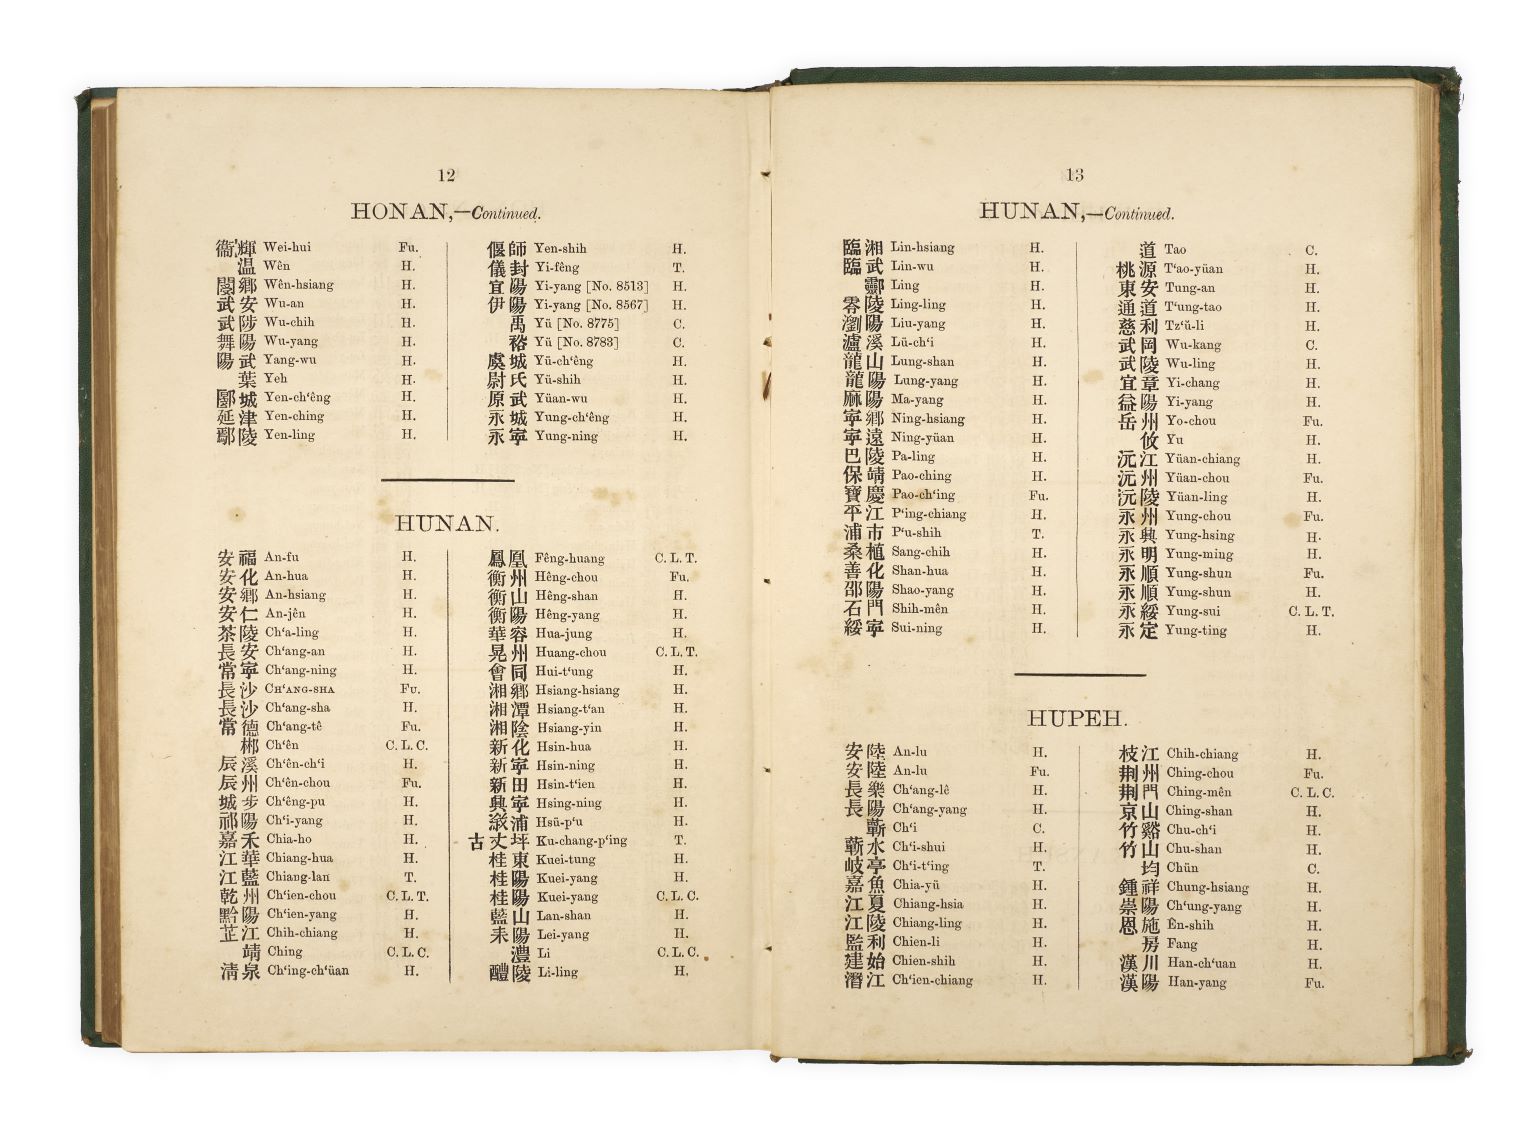 12
HONAN,—Continued.
衞輝 Wei-hui Fu.
温 Wên H.
閿鄉 Wên-hsiang H.
武安 Wu-an H.
武陟 Wu-chih H.
舞陽 Wu-yang H.
陽武 Yang-wu H.
葉 Yeh H.
郾城 Yen-ch‘êng H.
延津 Yen-ching H.
鄢陵 Yen-ling H.
偃師 Yen-shih H.
儀封 Yi-fêng T.
宜陽 Yi-yang [No. 8513] H.
伊陽 Yi-yang [No. 8567] H.
禹 Yü [No. 8775] C.
裕 Yü [No. 8783] C.
虞城 Yü-ch‘êng H.
尉氏 Yü-shih H.
原武 Yüan-wu H.
永城 Yung-ch‘êng H.
永寧 Yung-ning H.
HUNAN.
安福 An-fu H.
安化 An-hua H.
安鄉 An-hsiang H.
安仁 An-jên H.
茶陵 Ch‘a-ling H.
長安 Ch‘ang-an H.
常寧 Ch‘ang-ning H.
長沙 CH‘ANG-SHA Fu.
長沙 Ch‘ang-sha H.
常德 Ch‘ang-tê Fu.
郴 Ch‘ên C. L. C.
辰溪 Ch‘ên-ch‘i H.
辰州 Ch‘ên-chou Fu.
城步 Ch‘êng-pu H.
祁陽 Ch‘i-yang H.
嘉禾 Chia-ho H.
江華 Chiang-hua H.
江藍 Chiang-lan T.
乾州 Ch‘ien-chou C. L. T.
黔陽 Ch‘ien-yang H.
芷江 Chih-chiang H.
靖 Ching C. L. C.
清泉 Ch‘ing-ch‘üan H.
鳳凰 Fêng-huang C. L. T.
衡州 Hêng-chou Fu.
衡山 Hêng-shan H.
衡陽 Hêng-yang H.
華容 Hua-jung H.
晃州 Huang-chou C. L. T.
會同 Hui-t‘ung H.
湘鄉 Hsiang-hsiang H.
湘潭 Hsiang-t‘an H.
湘陰 Hsiang-yin H.
新化 Hsin-hua H.
新寧 Hsin-ning H.
新田 Hsin-t‘ien H.
興寧 Hsing-ning H.
漵浦 Hsü-p‘u H.
古丈坪 Ku-chang-p‘ing T.
桂東 Kuei-tung H.
桂陽 Kuei-yang H.
桂陽 Kuei-yang C. L. C.
藍山 Lan-shan H.
耒陽 Lei-yang H.
澧 Li C. L. C.
醴陵 Li-ling H.
13
HUNAN,—Continued.
臨湘 Lin-hsiang H.
臨武 Lin-wu H.
酃 Ling H.
零陵 Ling-ling H.
瀏陽 Liu-yang H.
瀘溪 Lü-ch‘i H.
龍山 Lung-shan H.
龍陽 Lung-yang H.
麻陽 Ma-yang H.
寧鄉 Ning-hsiang H.
寧遠 Ning-yüan H.
巴陵 Pa-ling H.
保靖 Pao-ching H.
寶慶 Pao-ch‘ing Fu.
平江 P‘ing-chiang H.
浦市 P‘u-shih T.
桑植 Sang-chih H.
善化 Shan-hua H.
邵陽 Shao-yang H.
石門 Shih-mên H.
綏寧 Sui-ning H.
道 Tao C.
桃源 T‘ao-yüan H.
東安 Tung-an H.
通道 T‘ung-tao H.
慈利 Tz‘ŭ-li H.
武岡 Wu-kang C.
武陵 Wu-ling H.
宜章 Yi-chang H.
益陽 Yi-yang H.
岳州 Yo-chou Fu.
攸 Yu H.
沅江 Yüan-chiang H.
沅州 Yüan-chou Fu.
沅陵 Yüan-ling H.
永州 Yung-chou Fu.
永興 Yung-hsing H.
永明 Yung-ming H.
永順 Yung-shun Fu.
永順 Yung-shun H.
永綏 Yung-sui C. L. T.
永定 Yung-ting H.
HUPEH.
安陸 An-lu H.
安陸 An-lu Fu.
長樂 Ch‘ang-lê H.
長陽 Ch‘ang-yang H.
蘄 Ch‘i C.
蘄水 Ch‘i-shui H.
岐亭 Ch‘i-t‘ing T.
嘉魚 Chia-yü H.
江夏 Chiang-hsia H.
江陵 Chiang-ling H.
監利 Chien-li H.
建始 Chien-shih H.
潛江 Ch‘ien-chiang H.
枝江 Chih-chiang H.
荆州 Ching-chou Fu.
荆門 Ching-mên C. L. C.
京山 Ching-shan H.
竹谿 Chu-ch‘i H.
竹山 Chu-shan H.
均 Chün C.
鍾祥 Chung-hsiang H.
崇陽 Ch‘ung-yang H.
恩施 Ên-shih H.
房 Fang H.
漢川 Han-ch‘uan H.
漢陽 Han-yang Fu.